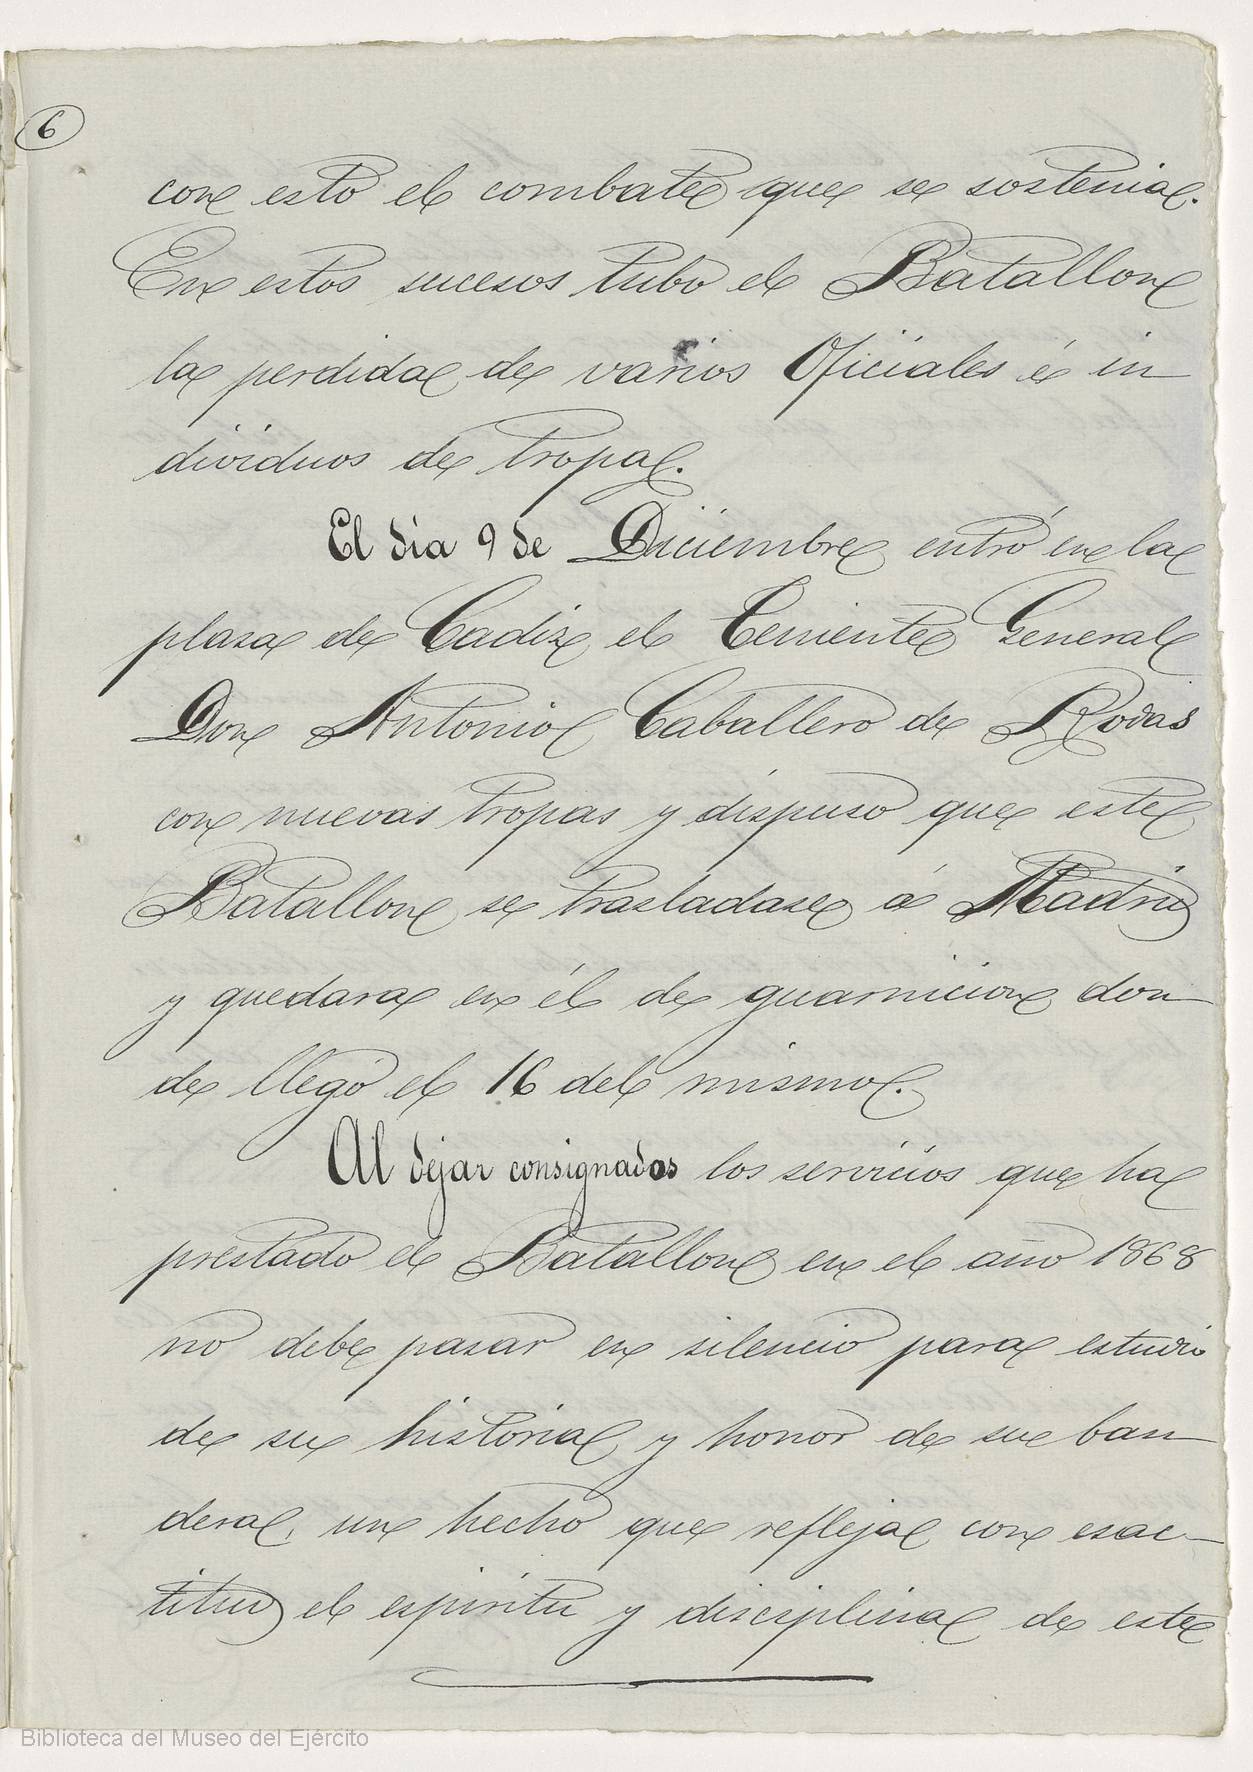 6
con esto el combate que se sostenia.
En estos sucesos tubo el Batallon
la perdida de varios Oficiales é in
dividuos de tropa.
El dia 9 de Diciembre entró en la
plasa de Cadiz el Teniente General
Don Antonio Caballero de Rodas
con nuevas tropas y dispuso que este
Batallon se trasladase á Madrid
y quedara en él de guarnicion don
de llegó el 16 del mismo.
Al dejar consignados los servicios que ha
prestado el Batallon en el año 1868
no debe pasar en silencio para estudio
de su historia y honor de su ban
dera, un hecho que refleja con esac-
titud el espiritu y disciplina de este
Biblioteca del Museo del Ejército